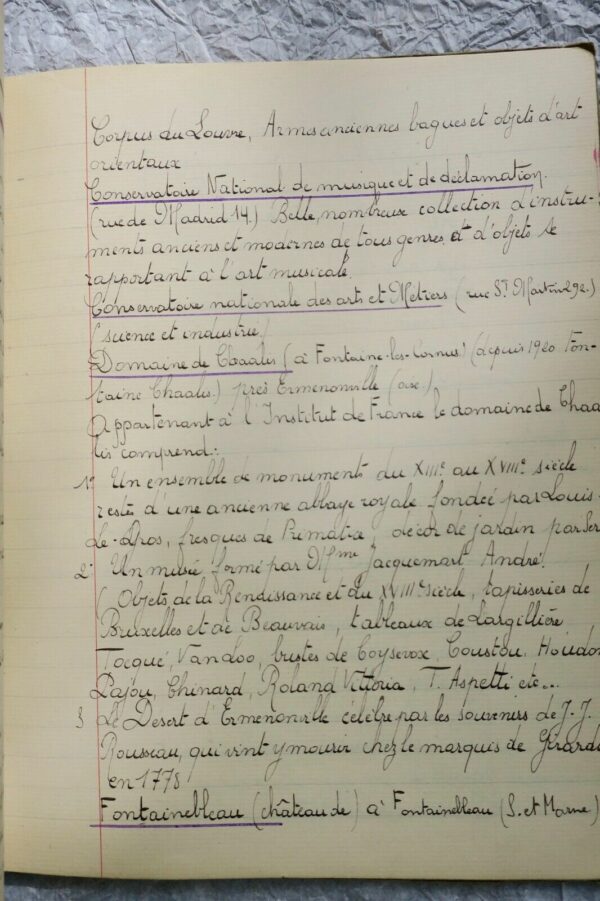 Corpus du Louvre, Armes anciennes bagues et objets d'art
orientaux
Conservatoire National de musique et de déclamation.
(rue de Madrid 14.) Belle, nombreuse collection d'instru-
ments anciens et modernes de tous genres et d'objets se
rapportant à l'art musicale.
Conservatoire nationale des arts et Métiers (rue St Martin 292.)
(science et industrie)
Domaine de Chaalis (à Fontaine-les-Cornus.) (depuis 1920 Fon-
taine Chaalis.) près Ermenonville (oise.)
Appartenant à l'Institut de France le domaine de Chaa
lis comprend:
1° Un ensemble de monuments du XIIIe au XVIIIe siècle
restes d'une ancienne abbaye royale fondée par Louis-
Le-Gros, fresques de Primatice, décor de jardin par Ser
2° Un musée formé par Mme Jacquemart André.
(Objets de la Renaissance et du XVIIIe siècle, tapisseries de
Bruxelles et de Beauvais, tableaux de Largillière
Tocqué, Vanloo, bustes de Coysevox, Coustou, Houdon
Pajou, Chinard, Roland Vittoria, T. Aspetti etc...
3 Le Désert d'Ermenonville célèbre par les souvenirs de J. J.
Rousseau, qui vint y mourir chez le marquis de Girardi
en 1778
Fontainebleau (château de) à Fontainebleau (S. et Marne)